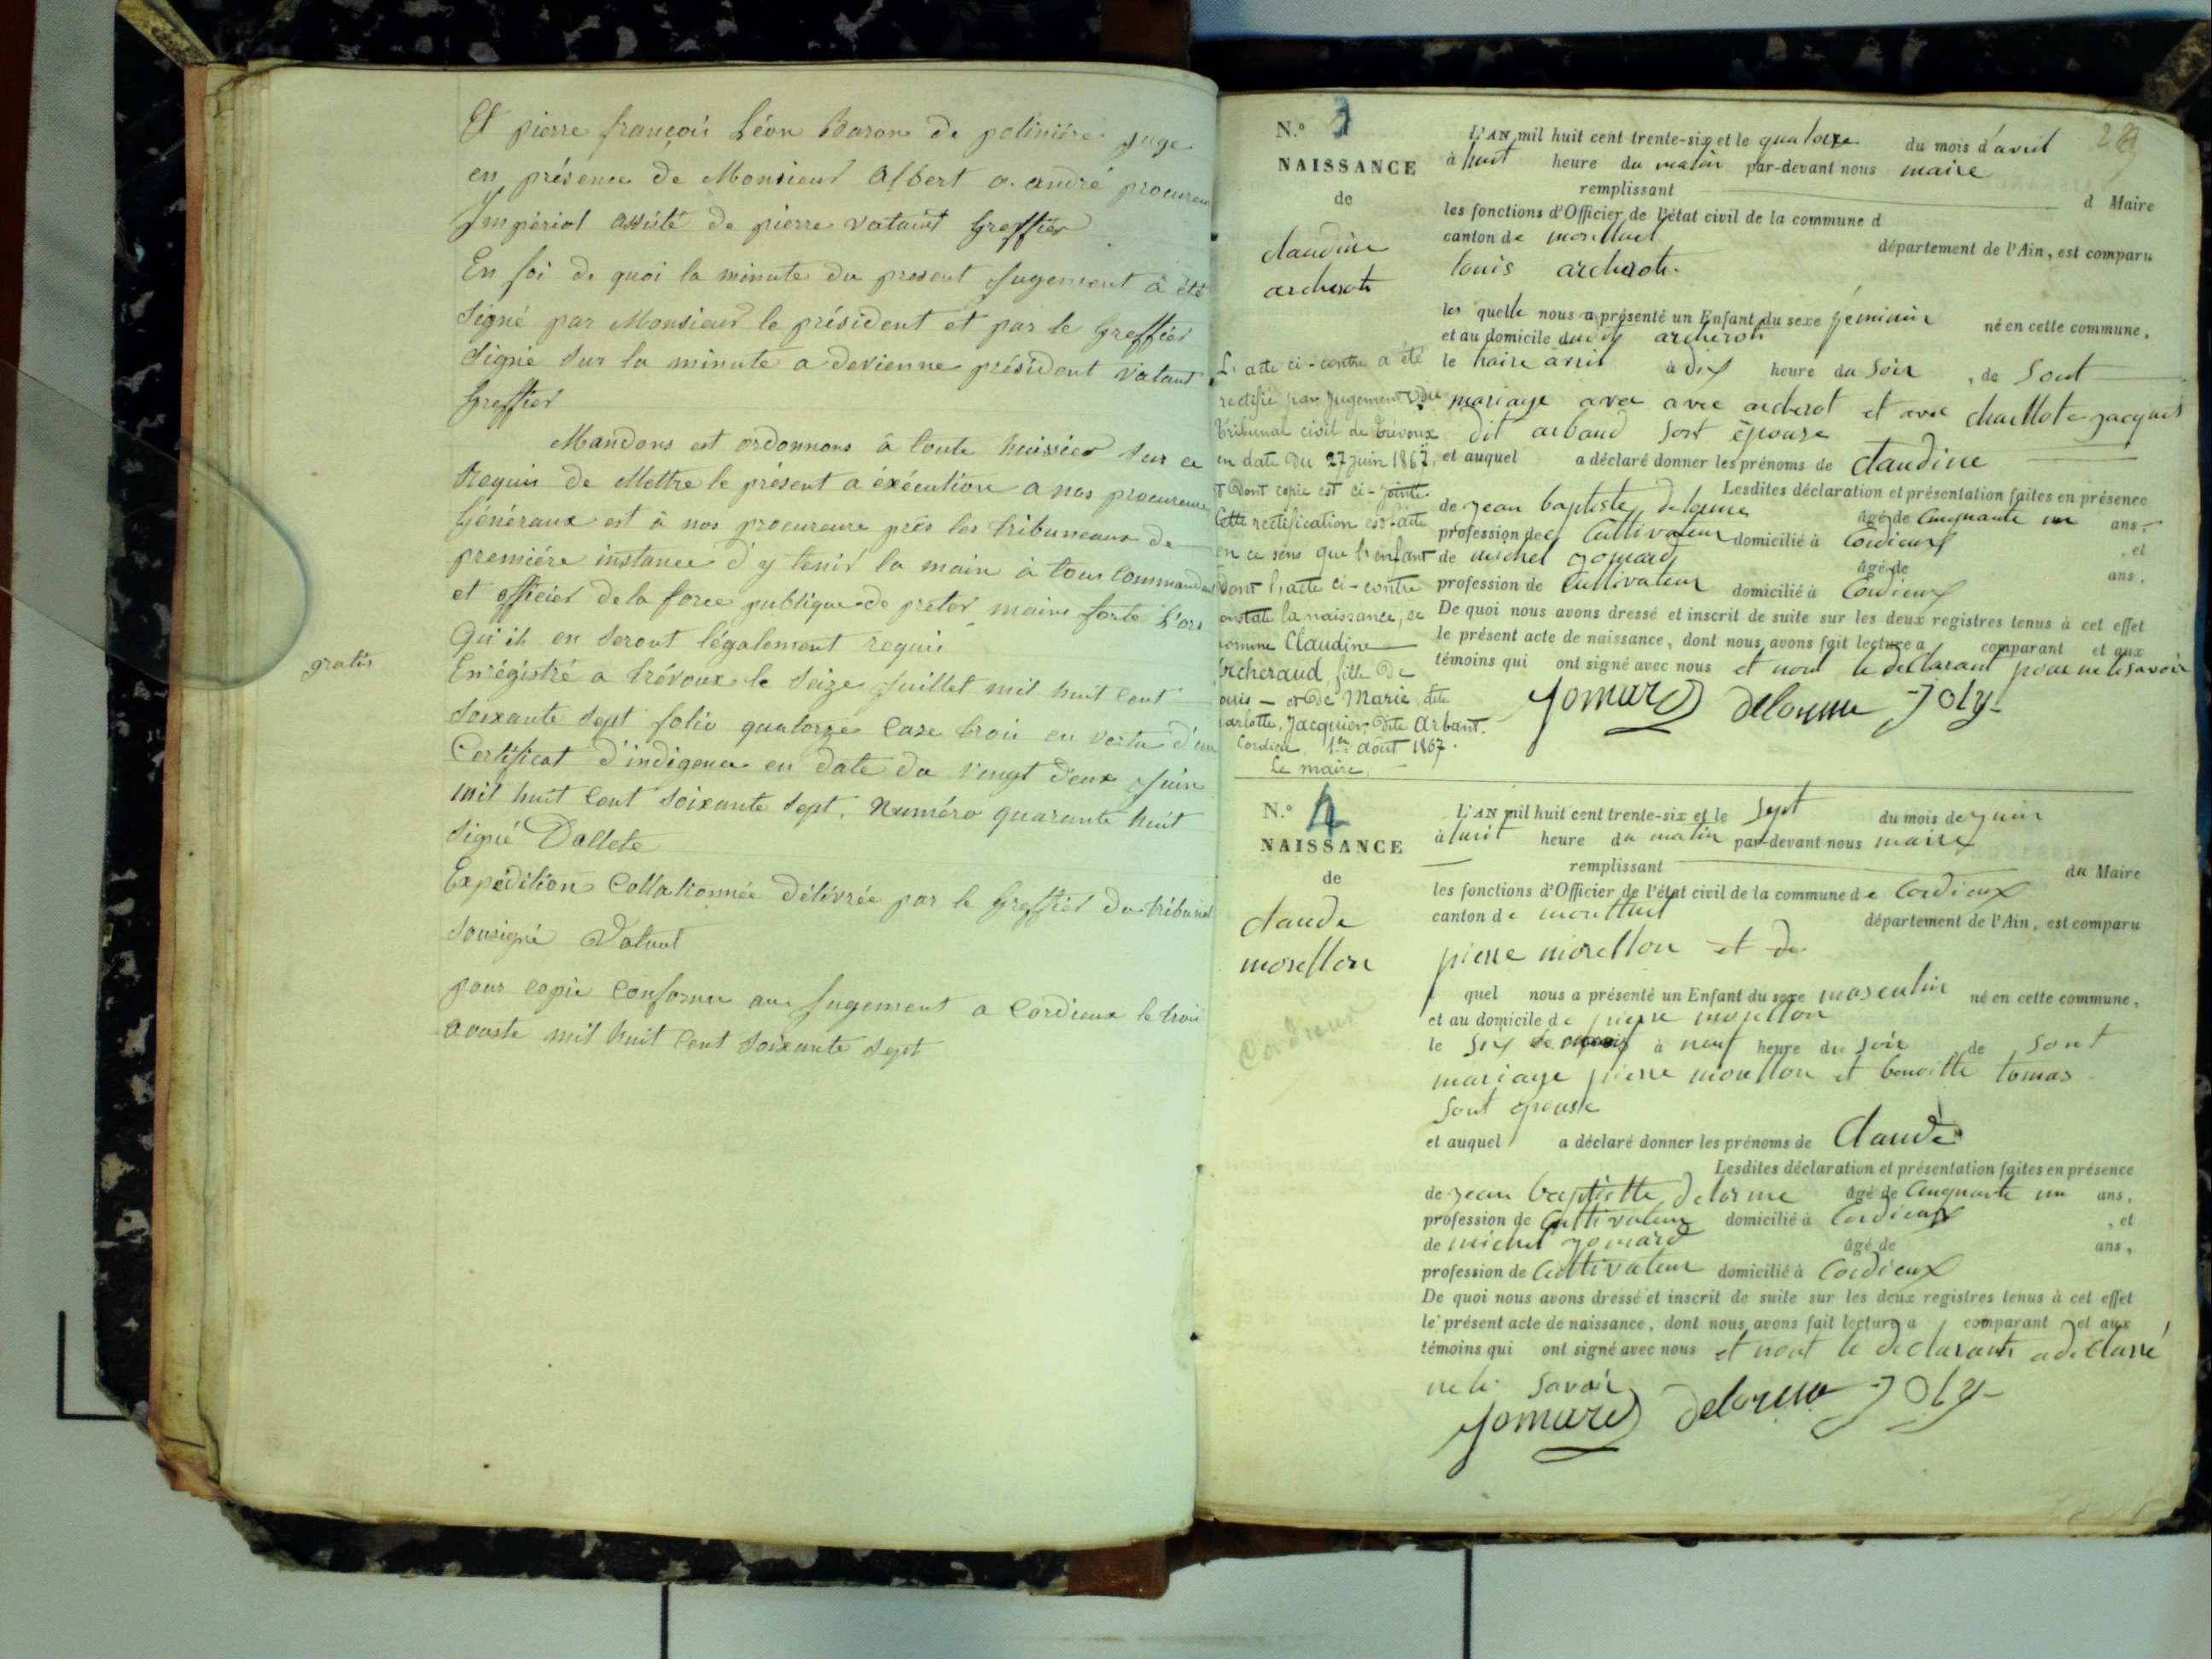 Et pierre françois Léon Baron de poliniére juge
en présence de Monsieur Albert a. andré procureu
Impérial assisté de pierre vatant Greffier
En foi de quoi la minute du present jugement à été
Signé par Monsieur le président et par le Greffier
Signé sur la minute a devienne président Vatant
Greffier
Mandons est ordonnons à toute huissier sur ce
Requis de Mettre le présent a éxécution a nos procureure
Généraux est à nos procureure près les tribuneaux de
premiére instance d'y tenir la main à tous Commandan
et officier de la force publique de préter mains forte L'ors
Qu'ils en Seront légalement requis
gratis
Enrégistré a trévoux le Seize Juillet mil huit Cent
Soixante Sept folio quatorze Case trois en vertu d'un
Certificat d'indigence en date du vingt deux Juin
mil huit Cent Soixante Sept, Numéro quarante huit
Signé Dallete
Expédition Collationnée Délivrée par le Greffier du tribunal
Sousigné Vatant
pour copie Conforme au Jugement a Cordieux le trois
aouste mil huit Cent Soixante Sept
N.° 3
NAISSANCE
de
claudine
archerot
L'acte ci-contre a été
rectifié par jugement du
tribunal civil de Trévoux
en date du 27 juin 1867,
t dont copie est ci-jointe.
Cette rectification est faite
en ce sens que l'enfant
dont l'acte ci-contre
onstate la naissance, se
nomme Claudine
Archeraud, fille de
ouis — et de Marie, dite
arlotte, Jacquier, dite Arbant.
Cordieu, 1er août 1867.
Le maire,
L'AN mil huit cent trente-six et le quatorze du mois d'avril
à huit heure du matin par-devant nous maire
remplissant d Maire
les fonctions d'Officier de l'état civil de la commune d
canton de monttuel département de l'Ain, est comparu
louis archerot
les quelle nous a présenté un Enfant du sexe féminin né en cette commune,
et au domicile dudit archerot
le traire avril à dix heure du Soir , de Sont
mariage avec avec archerot et avec charllote jacquis
dit arbaud Sont épouse
et auquel a déclaré donner les prénoms de claudine
Lesdites déclaration et présentation faites en présence
de jean baptiste delorme âgé de Cinquante un ans,
profession de Cultivateur domicilié à Cordieux , et
de michel jomard âgé de ans,
profession de Cultivateur domicilié à Cordieux
De quoi nous avons dressé et inscrit de suite sur les deux registres tenus à cet effet
le présent acte de naissance, dont nous avons fait lecture a comparant et aux
témoins qui ont signé avec nous et nont le declarant pour ne le savoir
Jomard delorme Joly
N.° 4
NAISSANCE
de
claude
morellon
L'AN mil huit cent trente-six et le Sept du mois de juin
à huit heure du matin par-devant nous maire
remplissant du Maire
les fonctions d'Officier de l'état civil de la commune de Cordieux
canton de monttuel département de l'Ain, est comparu
pierre morellon et de
quel nous a présenté un Enfant du sexe masculin né en cette commune,
et au domicile de pierre morellon
le Six à neuf heure du soir de Sont
mariage pierre morellon et benoitte tomas
Sont epouse
et auquel a déclaré donner les prénoms de Claude
Lesdites déclaration et présentation faites en présence
de jean baptistte delorme âgé de Cinquante un ans,
profession de Cultivateur domicilié à Cordieux , et
de michel jomard âgé de ans,
profession de Cultivateur domicilié à Cordieux
De quoi nous avons dressé et inscrit de suite sur les deux registres tenus à cet effet
le présent acte de naissance, dont nous avons fait lecture a comparant et aux
témoins qui ont signé avec nous et nont le declarant adeclarré
ne le Savoir
Jomard delorme Joly